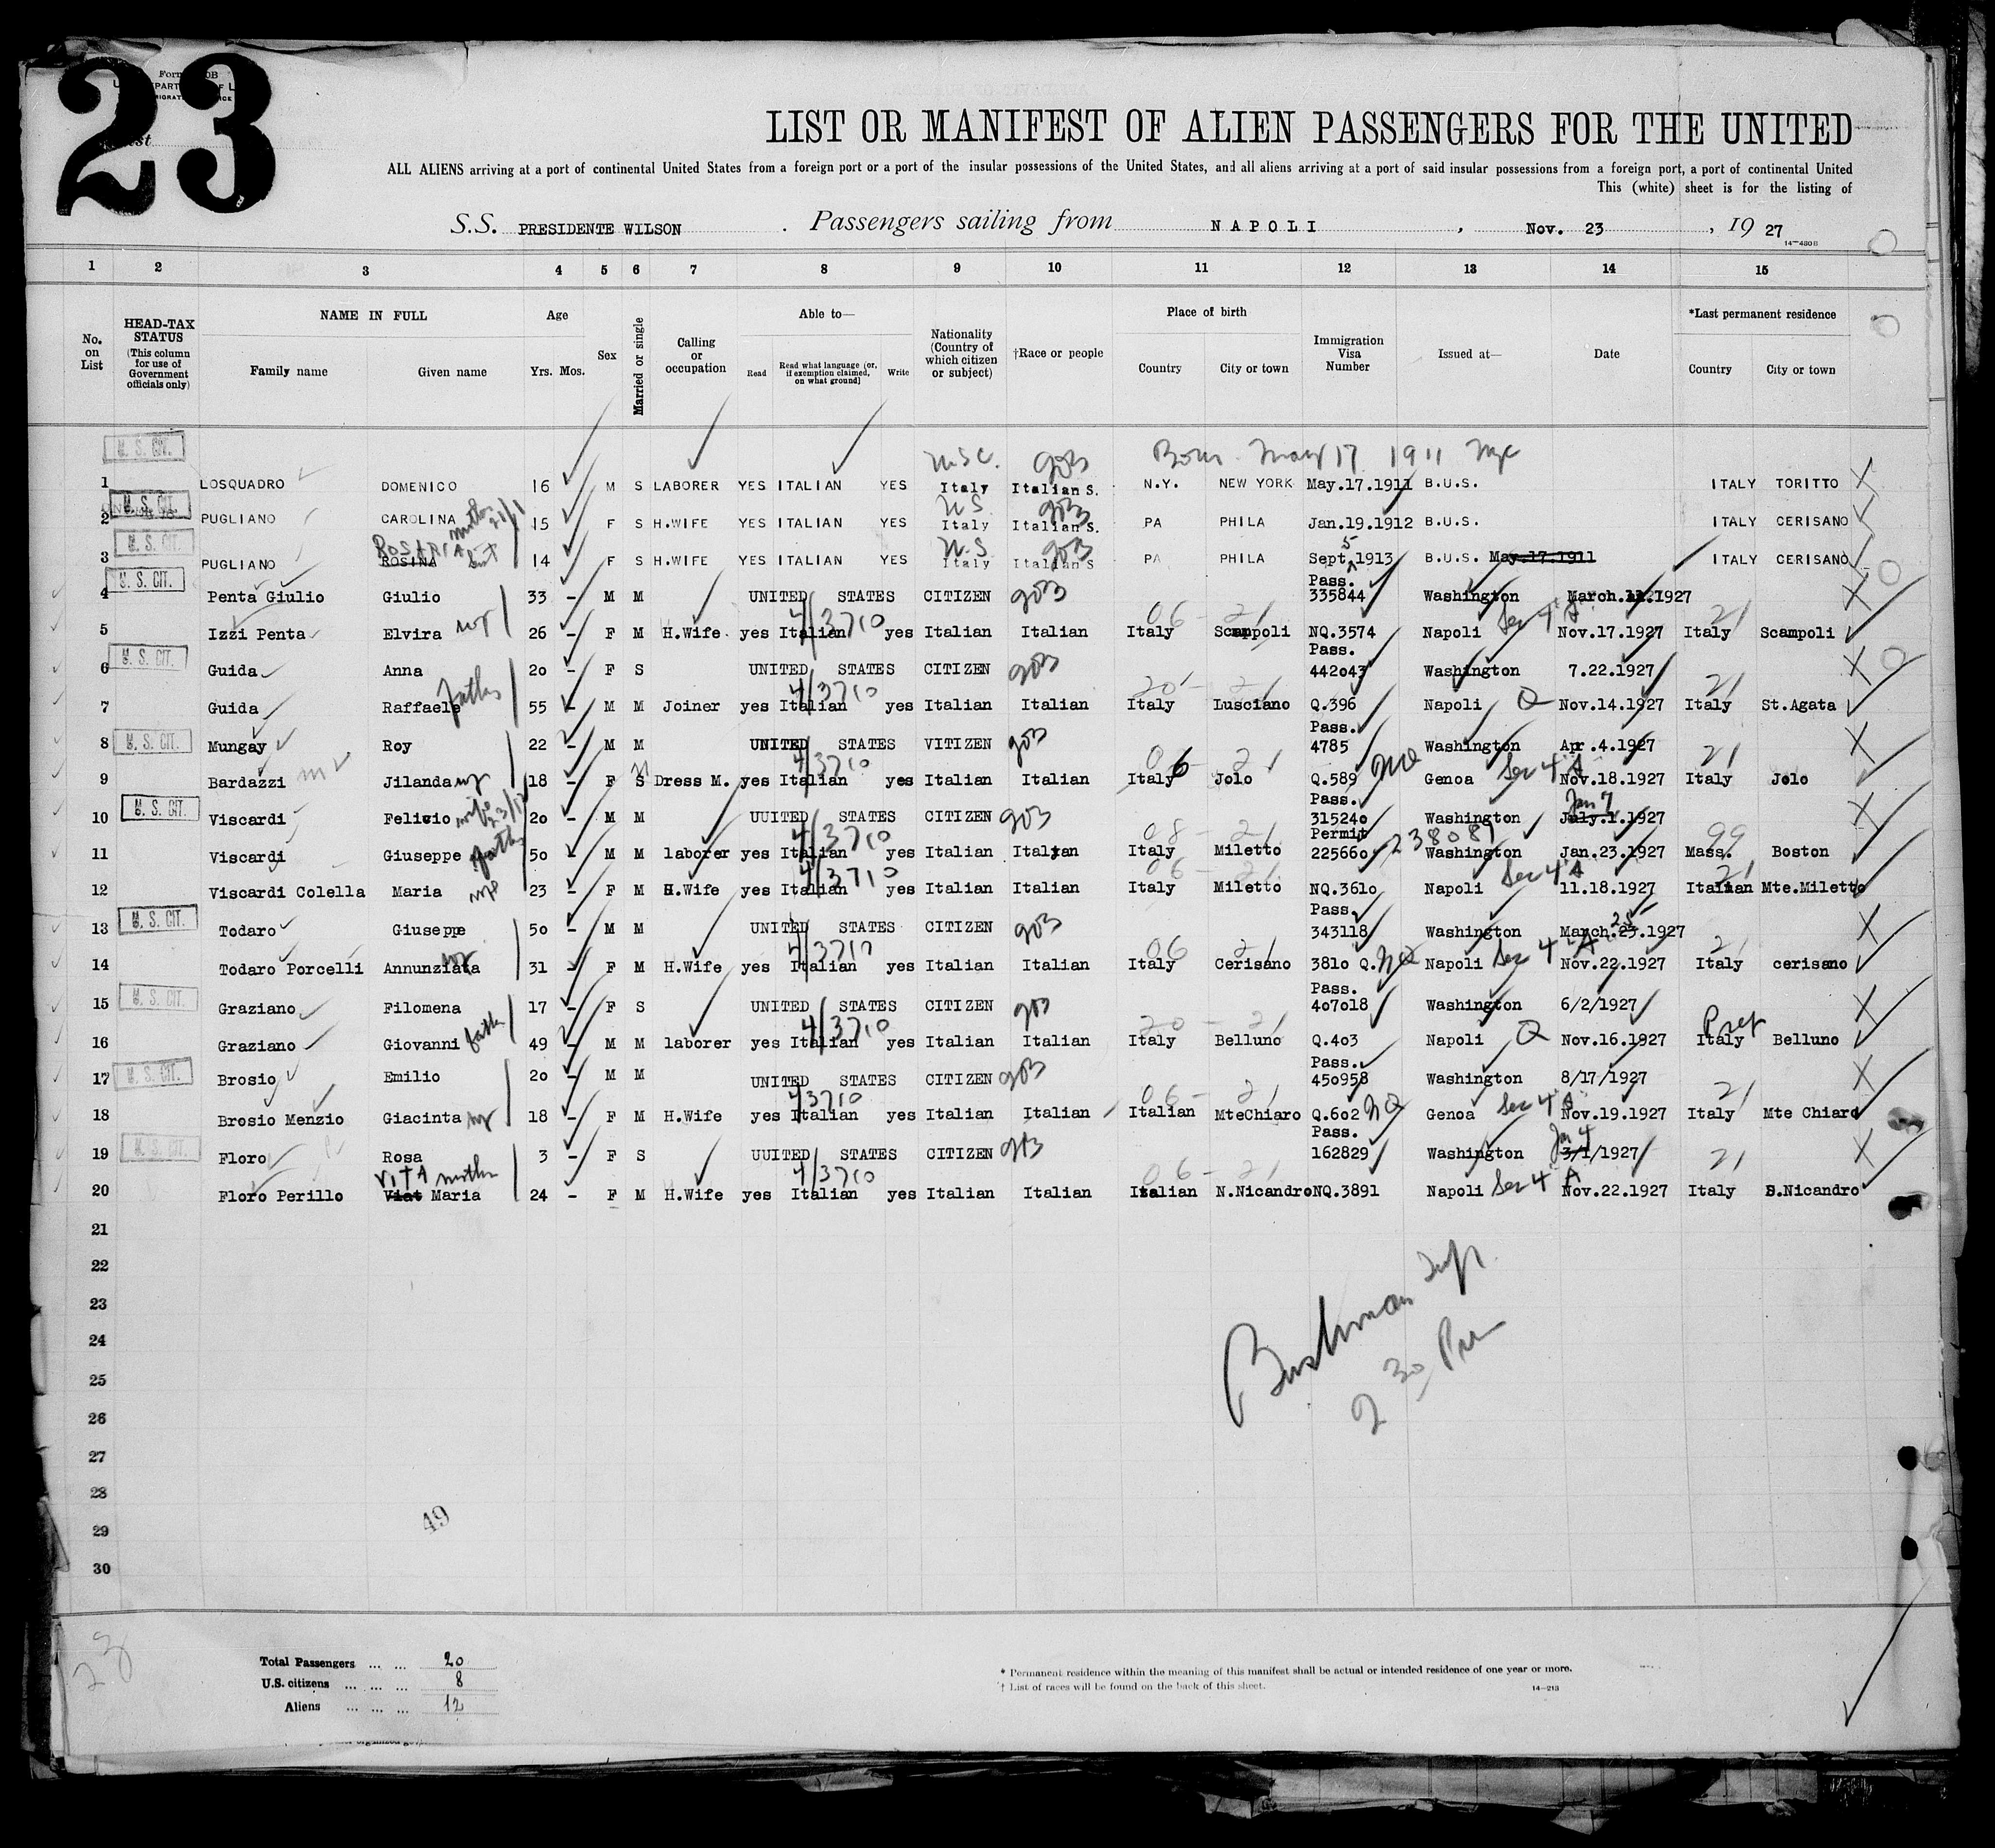 23
LIST OR MANIFEST OF ALIEN PASSENGERS FOR THE UNITED
ALL ALIENS arriving at a port of continental United States from a foreign port or a port of the insular possessions of the United States, and all aliens arriving at a port of said insular possessions from a foreign port, a port of continental United
This (white) sheet is for the listing of
S.S. PRESIDENTE WILSON . Passengers sailing from NAPOLI , Nov. 23 , 19 27
14-480B
1 2 3 4 5 6 7 8 9 10 11 12 13 14 15
No. on List
HEAD-TAX STATUS (This column for use of Government officials only)
NAME IN FULL Family name Given name
Age Yrs. Mos.
Sex
Married or single
Calling or occupation
Able to— Read Read what language (or, if exemption claimed, on what ground) Write
Nationality (Country of which citizen or subject)
†Race or people
Place of birth Country City or town
Immigration Visa Number
Issued at—
Date
*Last permanent residence Country City or town
U. S. CIT. Born May 17 1911 NYC
1 LOSQUADRO DOMENICO 16 M S LABORER YES ITALIAN YES Italy Italian S. N.Y. NEW YORK May.17.1911 B.U.S. ITALY TORITTO
U. S. CIT. U S
2 PUGLIANO CAROLINA 15 F S H.WIFE YES ITALIAN YES Italy Italian S. PA PHILA Jan.19.1912 B.U.S. ITALY CERISANO
U. S. CIT. ROSARIA U.S 5
3 PUGLIANO ROSINA 14 F S H.WIFE YES ITALIAN YES Italy Italian S PA PHILA Sept.1913 B.U.S. May.17.1911 ITALY CERISANO
U. S. CIT. Pass.
4 Penta Giulio Giulio 33 - M M UNITED STATES CITIZEN 335844 Washington March.11.1927
06 - 21 Sec 4 A 21
5 Izzi Penta Elvira 26 - F M H.Wife yes Italian 4/3710 yes Italian Italian Italy Scampoli NQ.3574 Napoli Nov.17.1927 Italy Scampoli
U. S. CIT. Pass.
6 Guida Anna 20 - F S UNITED STATES CITIZEN 442043 Washington 7.22.1927
father 4/3710 20 - 21 21
7 Guida Raffaele 55 - M M Joiner yes Italian yes Italian Italian Italy Lusciano Q.396 Napoli Q Nov.14.1927 Italy St.Agata
U. S. CIT. Pass.
8 Mungay Roy 22 - M M UNITED STATES VITIZEN 4785 Washington Apr.4.1927
4/3710 06 21 Sec 4 A 21
9 Bardazzi Jilanda 18 - F S Dress M. yes Italian yes Italian Italian Italy Jolo Q.589 NQ Genoa Nov.18.1927 Italy Jolo
U. S. CIT. Pass. Jan 7
10 Viscardi Felicio 20 - M M UUITED STATES CITIZEN 315240 Washington July.1.1927
father 4/3710 08 - 21 Permit 238081 99
11 Viscardi Giuseppe 50 - M M laborer yes Italian yes Italian Italian Italy Miletto 225660 Washington Jan.23.1927 Mass. Boston
4/3710 06 - 21 Sec 4 A 21
12 Viscardi Colella Maria 23 - F M H.Wife yes Italian yes Italian Italian Italy Miletto NQ.3610 Napoli 11.18.1927 Italian Mte.Miletto
U. S. CIT. Pass. 25
13 Todaro Giusepp 50 - M M UNITED STATES CITIZEN 343118 Washington March.23.1927
4/3710 06 21 Sec 4 A 21
14 Todaro Porcelli Annunziata 31 - F M H.Wife yes Italian yes Italian Italian Italy Cerisano 3810 Q. NQ Napoli Nov.22.1927 Italy cerisano
U. S. CIT. Pass.
15 Graziano Filomena 17 - F S UNITED STATES CITIZEN 407018 Washington 6/2/1927
father 4/3710 20 - 21 Pref
16 Graziano Giovanni 49 - M M laborer yes Italian yes Italian Italian Italy Belluno Q.403 Napoli Q Nov.16.1927 Italy Belluno
U. S. CIT. Pass.
17 Brosio Emilio 20 - M M UNITED STATES CITIZEN 450958 Washington 8/17/1927
43710 06 - 21 Sec 4 A 21
18 Brosio Menzio Giacinta 18 - F M H.Wife yes Italian yes Italian Italian Italian MteChiaro Q.602 NQ Genoa Nov.19.1927 Italy Mte Chiaro
U. S. CIT. Pass. Jan 4
19 Floro Rosa 3 - F S UUITED STATES CITIZEN 162829 Washington 3/1/1927
VITA mother 4/3710 06 - 21 Sec 4 A 21
20 Floro Perillo Viat Maria 24 - F M H.Wife yes Italian yes Italian Italian Italian N.Nicandro NQ.3891 Napoli Nov.22.1927 Italy S.Nicandro
21
22
23
24
25
26
27
28
29
30
Bushman Insp.
2 30 Pm
49
23
Total Passengers ... ... 20
U.S. citizens ... ... ... 8
Aliens ... ... ... 12
* Permanent residence within the meaning of this manifest shall be actual or intended residence of one year or more.
† List of races will be found on the back of this sheet.
14-213